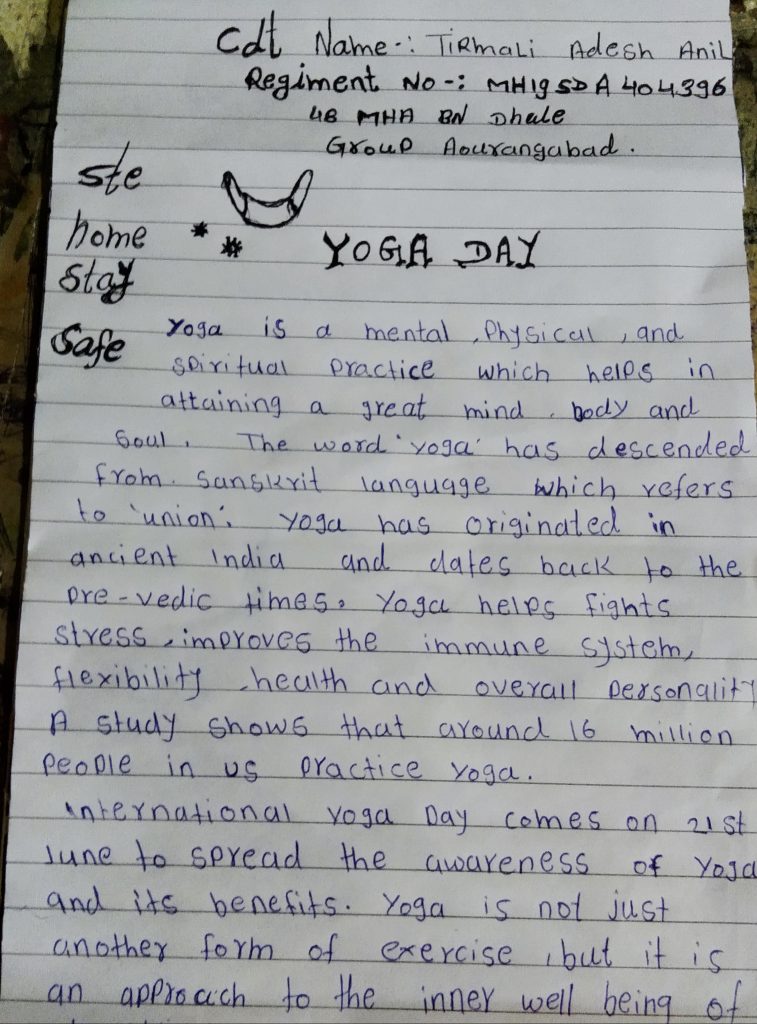 Cdt Name-: TIRmaLi Adesh AniL
Regiment No-: MH19SDA404396
48 MHA BN Dhule
Group Aourangabad.
ste
home
stay
safe
YOGA DAY
Yoga is a mental, Physical, and
spiritual practice which helps in
attaining a great mind, body and
soul. The word 'yoga' has descended
from. sanskrit language which refers
to 'union'. yoga has originated in
ancient India and dates back to the
pre-vedic times. Yoga helps fights
stress, improves the immune system,
flexibility, health and overall personality
A study shows that around 16 million
people in us practice yoga.
International yoga Day comes on 21st
June to spread the awareness of Yoga
and its benefits. Yoga is not just
another form of exercise, but it is
an approach to the inner well being of